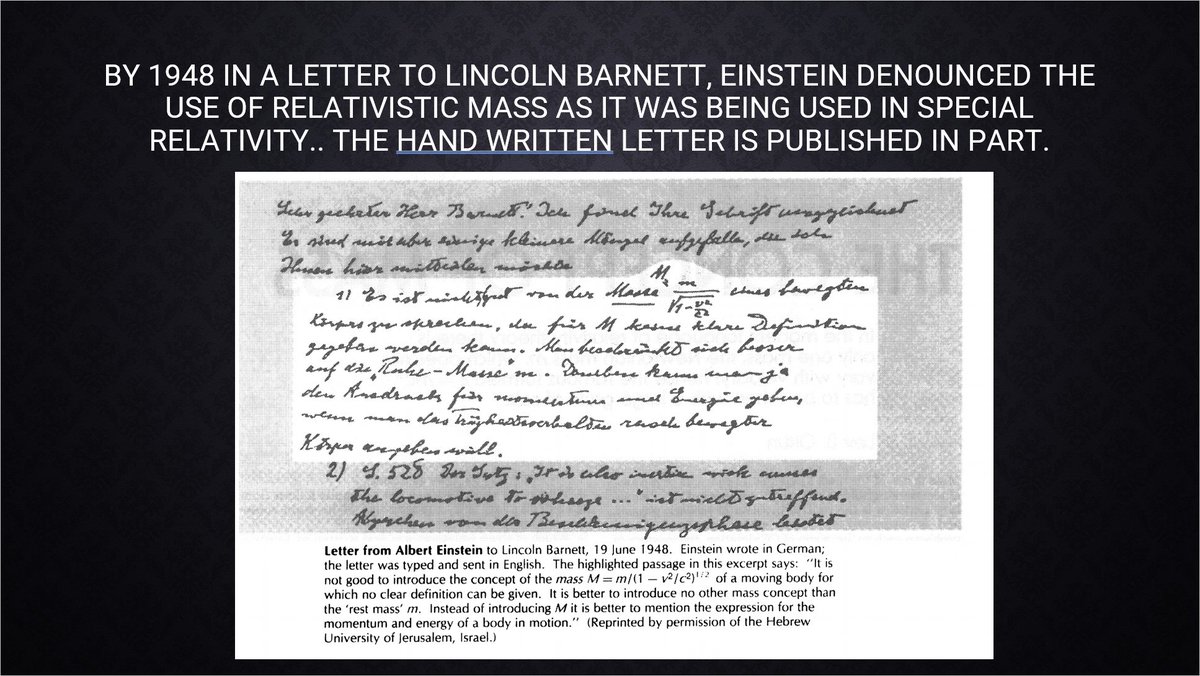 BY 1948 IN A LETTER TO LINCOLN BARNETT, EINSTEIN DENOUNCED THE
USE OF RELATIVISTIC MASS AS IT WAS BEING USED IN SPECIAL
RELATIVITY.. THE HAND WRITTEN LETTER IS PUBLISHED IN PART.
Sehr geehrter Herr Barnett! Ich fand Ihre Schrift ausgezeichnet
Es sind mir aber einige kleinere Mängel aufgefallen, die ich
Ihnen hier mitteilen möchte
1) Es ist nicht gut von der Masse M = m/√(1-v²/c²) eines bewegten
Körpers zu sprechen, da für M keine klare Definition
gegeben werden kann. Man beschränkt sich besser
auf die "Ruhe-Masse" m. Daneben kann man ja
den Ausdruck für momentum und Energie geben,
wenn man das Trägheitsverhalten rasch bewegter
Körper angeben will.
2) S. 528 Der Satz: "It is also inertia wich causes
the locomotive to wheeze ..." ist nicht zutreffend.
Abgesehen von der Beschleunigungsphase
Letter from Albert Einstein to Lincoln Barnett, 19 June 1948. Einstein wrote in German;
the letter was typed and sent in English. The highlighted passage in this excerpt says: "It is
not good to introduce the concept of the mass M = m/(1 − v²/c²)¹/² of a moving body for
which no clear definition can be given. It is better to introduce no other mass concept than
the 'rest mass' m. Instead of introducing M it is better to mention the expression for the
momentum and energy of a body in motion." (Reprinted by permission of the Hebrew
University of Jerusalem, Israel.)